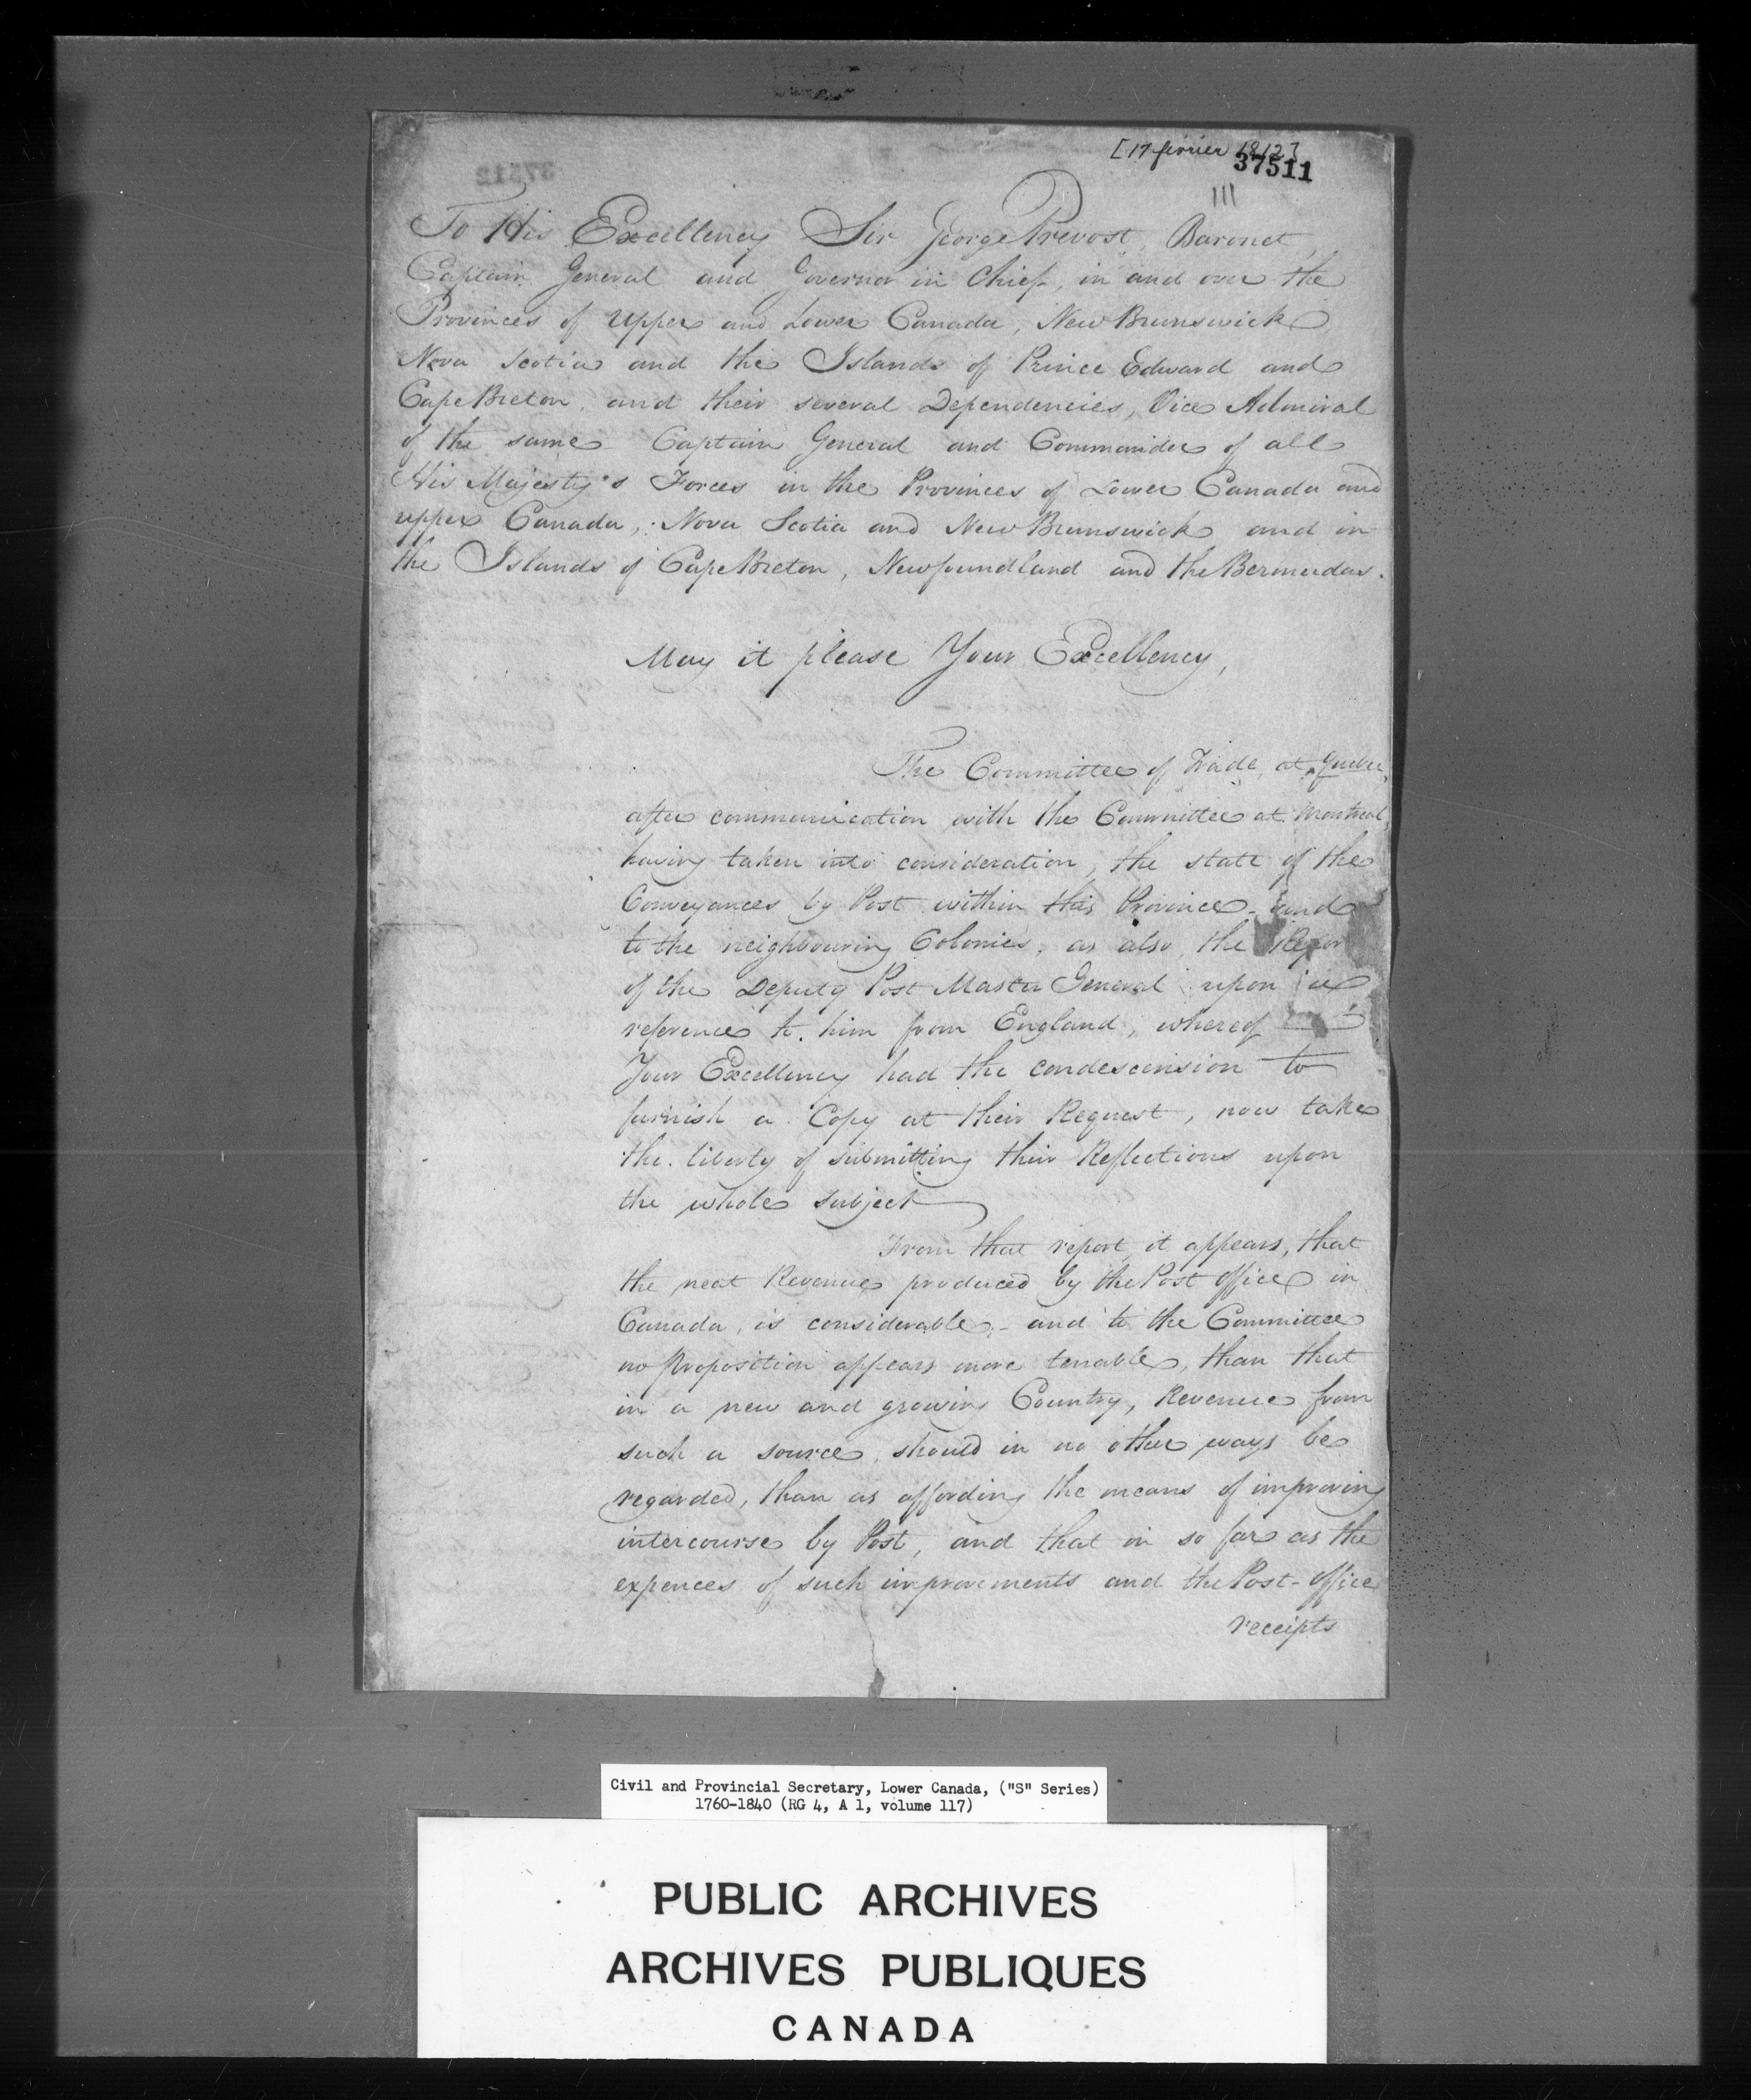 [17 février 1812]
37511
111
To His Excellency Sir George Prevost, Baronet,
Captain General and Governor in Chief, in and over the
Provinces of Upper and Lower Canada, New Brunswick,
Nova Scotia and the Islands of Prince Edward and
Cape Breton, and their several Dependencies, Vice Admiral
of the same Captain General and Commander of all
His Majesty's Forces in the Provinces of Lower Canada and
upper Canada, Nova Scotia and New Brunswick and in
the Islands of Cape Breton, Newfoundland and the Bermudas.
May it please Your Excellency,
The Committee of Trade, at Quebec,
after communication with the Committee at Montreal,
having taken into consideration, the state of the
Conveyances by Post within this Province and
to the neighbouring Colonies, as also, the Repor
of the Deputy Post Master General upon a
reference to him from England, whereof
Your Excellency had the condescension to
furnish a Copy at their Request, now take
the liberty of submitting their Reflections upon
the whole subject
From that report, it appears, that
the neat Revenue produced by the Post Office in
Canada, is considerable, - and to the Committee
no proposition appears more tenable, than that
in a new and growing Country, Revenue from
such a source, should in no other ways be
regarded, than as affording the means of improving
intercourse by Post, and that in so far as the
expences of such improvements and the Post-Office
receipts
Civil and Provincial Secretary, Lower Canada, ("S" Series)
1760-1840 (RG 4, A 1, volume 117)
PUBLIC ARCHIVES
ARCHIVES PUBLIQUES
CANADA